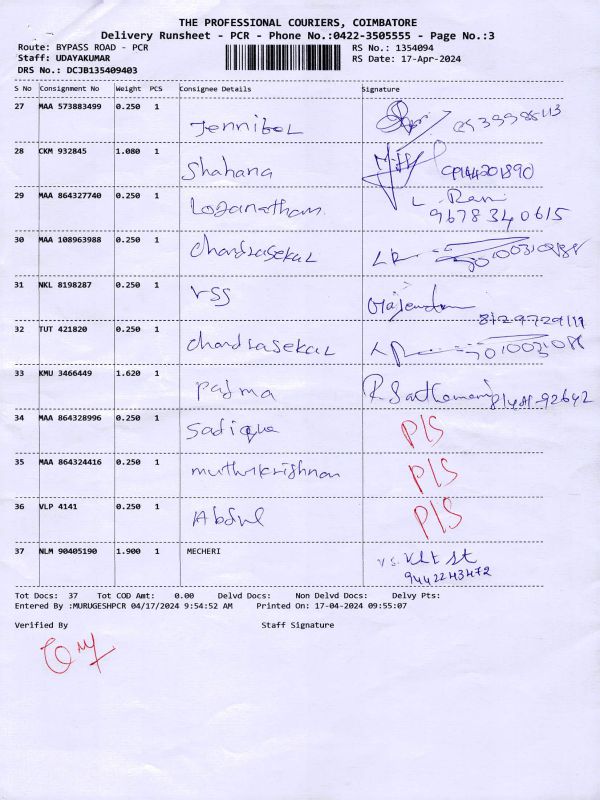 THE PROFESSIONAL COURIERS, COIMBATORE
Delivery Runsheet - PCR - Phone No.:0422-3505555 - Page No.:3
Route: BYPASS ROAD - PCR RS No.: 1354094
Staff: UDAYAKUMAR RS Date: 17-Apr-2024
DRS No.: DCJB135409403
S No Consignment No Weight PCS Consignee Details Signature
27 MAA 573883499 0.250 1 Jennibol
28 CKM 932845 1.080 1 Shahana
29 MAA 864327740 0.250 1 Loganatham L. Rani
9678340615
30 MAA 108963988 0.250 1 chandrasekar
31 NKL 8198287 0.250 1 VSS
8129729119
32 TUT 421820 0.250 1 chandrasekar
33 KMU 3466449 1.620 1 padma
34 MAA 864328996 0.250 1 Sadique P/S
35 MAA 864324416 0.250 1 muthukrishnan P/S
36 VLP 4141 0.250 1 Abdul P/S
37 NLM 90405190 1.900 1 MECHERI
9442243472
Tot Docs: 37 Tot COD Amt: 0.00 Delvd Docs: Non Delvd Docs: Delvy Pts:
Entered By :MURUGESHPCR 04/17/2024 9:54:52 AM Printed On: 17-04-2024 09:55:07
Verified By Staff Signature